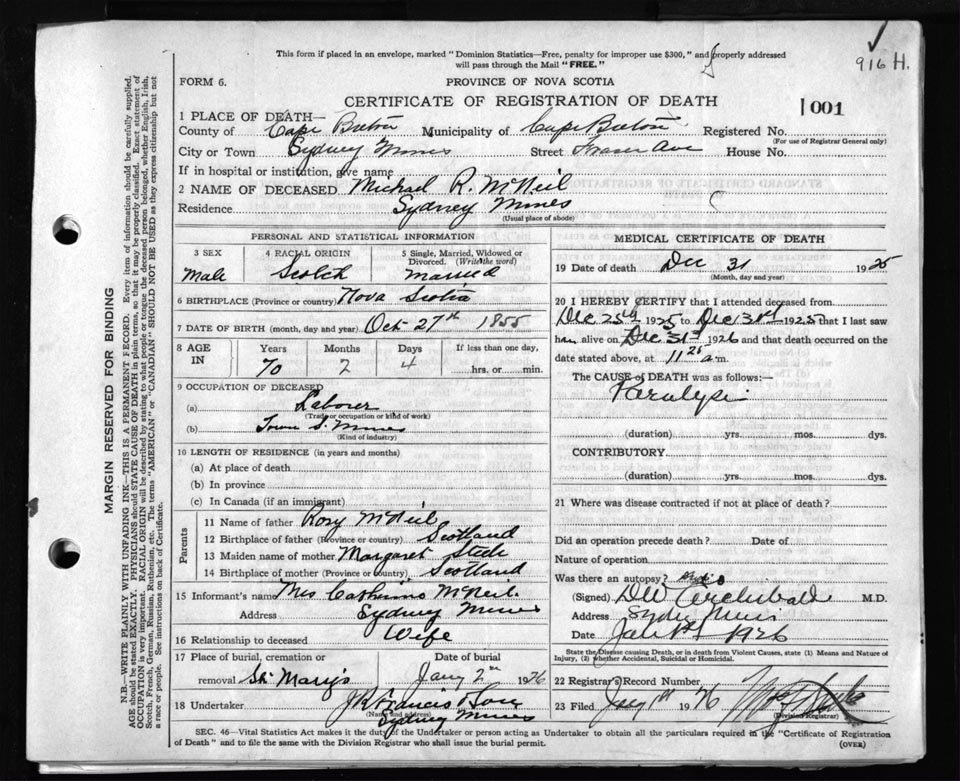 This form if placed in an envelope, marked "Dominion Statistics—Free, penalty for improper use $300," and properly addressed
will pass through the Mail "FREE."
916 H.
FORM 6.
PROVINCE OF NOVA SCOTIA
CERTIFICATE OF REGISTRATION OF DEATH
001
1 PLACE OF DEATH—
County of Cape Breton Municipality of Cape Breton Registered No.
(For use of Registrar General only)
City or Town Sydney Mines Street Fraser Ave House No.
If in hospital or institution, give name
2 NAME OF DECEASED Michael R. McNeil
Residence Sydney Mines
(Usual place of abode)
PERSONAL AND STATISTICAL INFORMATION
3 SEX Male
4 RACIAL ORIGIN Scotch
5 Single, Married, Widowed or Divorced. (Write the word) Married
6 BIRTHPLACE (Province or country) Nova Scotia
7 DATE OF BIRTH (month, day and year) Oct 27th 1855
8 AGE IN
Years Months Days If less than one day,
70 2 4 hrs. or min.
9 OCCUPATION OF DECEASED
(a) Laborer
(Trade or occupation or kind of work)
(b) Town S. Mines
(Kind of industry)
10 LENGTH OF RESIDENCE (in years and months)
(a) At place of death
(b) In province
(c) In Canada (if an immigrant)
Parents
11 Name of father Rory McNeil
12 Birthplace of father (Province or country) Scotland
13 Maiden name of mother Margaret Steele
14 Birthplace of mother (Province or country) Scotland
15 Informant's name Mrs Catherine McNeil.
Address Sydney Mines
16 Relationship to deceased Wife
17 Place of burial, cremation or removal St. Mary's
Date of burial Jany 2nd 1926
18 Undertaker J R Francis & Son
(Name and address)
Sydney Mines
MEDICAL CERTIFICATE OF DEATH
19 Date of death Dec 31 1925
(Month, day and year)
20 I HEREBY CERTIFY that I attended deceased from
Dec 25th 1925 to Dec 31st 1925 that I last saw
him alive on Dec 31st 1926 and that death occurred on the
date stated above, at 11 25 a.m.
The CAUSE of DEATH was as follows:—
Paralysis
(duration) yrs. mos. dys.
CONTRIBUTORY
(duration) yrs. mos. dys.
21 Where was disease contracted if not at place of death?
Did an operation precede death? Date of
Nature of operation
Was there an autopsy?
(Signed) DW Archibald M.D.
Address Sydney Mines
Date Jan 1st 1926
State the Disease causing Death, or in death from Violent Causes, state (1) Means and Nature of
Injury, (2) whether Accidental, Suicidal or Homicidal.
22 Registrar's Record Number
23 Filed Jany 1st 1926
(Division Registrar)
SEC. 46—Vital Statistics Act makes it the duty of the Undertaker or person acting as Undertaker to obtain all the particulars required in the "Certificate of Registration
of Death" and to file the same with the Division Registrar who shall issue the burial permit.
(OVER)
MARGIN RESERVED FOR BINDING
N.B.—WRITE PLAINLY WITH UNFADING INK—THIS IS A PERMANENT RECORD. Every item of information should be carefully supplied.
AGE should be stated EXACTLY. PHYSICIANS should STATE CAUSE OF DEATH in plain terms, so that it may be properly classified. Exact statement of
OCCUPATION is very important. RACIAL ORIGIN will be described by stating to what people or tongue the deceased person belonged, whether English, Irish,
Scotch, French, German, Russian, Ruthenian, etc. The terms "AMERICAN" or "CANADIAN" SHOULD NOT BE USED as they express citizenship but not
a race or people. See instructions on back of Certificate.